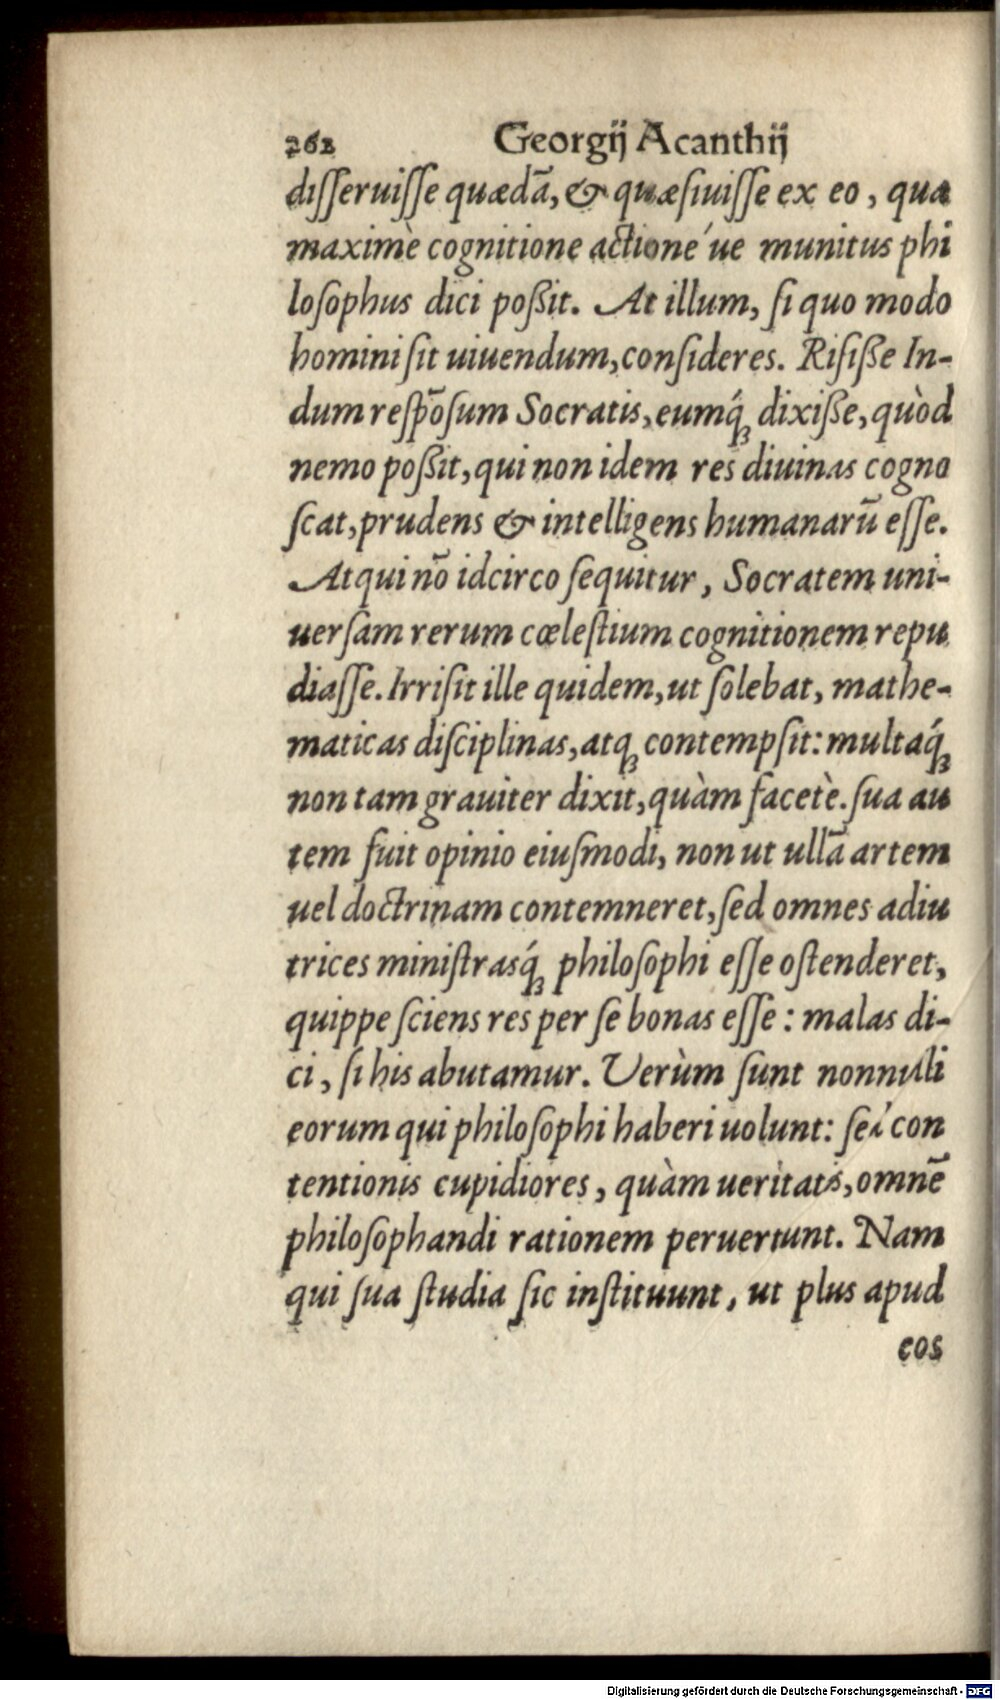 262 Georgij Acanthij
disseruisse quædā, & quæsiuisse ex eo, qua
maximè cognitione actioné ue munitus phi
losophus dici poßit. At illum, si quo modo
homini sit uiuendum, consideres. Risiße In-
dum respōsum Socratis, eumq́; dixiße, quòd
nemo poßit, qui non idem res diuinas cogno
scat, prudens & intelligens humanarū esse.
Atqui nō idcirco sequitur, Socratem uni-
uersam rerum cœlestium cognitionem repu
diasse. Irrisit ille quidem, ut solebat, mathe-
maticas disciplinas, atq; contempsit: multaq́;
non tam grauiter dixit, quàm facetè. sua au
tem fuit opinio eiusmodi, non ut ullā artem
uel doctrinam contemneret, sed omnes adiu
trices ministrasq́; philosophi esse ostenderet,
quippe sciens res per se bonas esse: malas di-
ci, si his abutamur. Verùm sunt nonnulli
eorum qui philosophi haberi uolunt: sed con
tentionis cupidiores, quàm ueritatis, omnē
philosophandi rationem peruertunt. Nam
qui sua studia sic instituunt, ut plus apud
eos
Digitalisierung gefördert durch die Deutsche Forschungsgemeinschaft - DFG